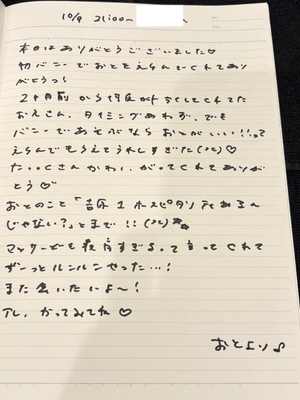 10/9 21:00~
本日はありがとうございました♡
初バニーでおとをえらんでくれてあり
がとうっ!
2ヶ月前から
おえさん、タイミングあわず、でも
バニーであそべるならおとがいい!!って
えらんでもらえてうれしすぎた(つㄥ)♡
たっっくさんかわいがってくれてありが
とう♡
おとのこと「吉原1ホスピタリティあるん
じゃない?」とまで!!(つㄥ)
マッサージも最高すぎるって言ってくれて
ずーっとルンルンやった…!
また会いたいよ〜!
アレ、かってみてね♡
おとより♪